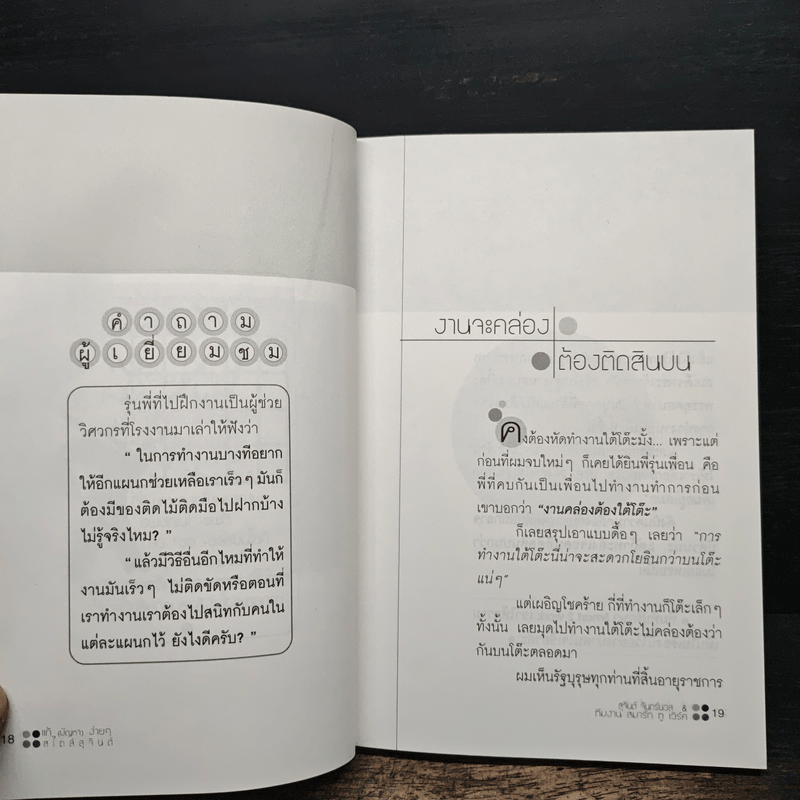 คำถาม
ผู้เยี่ยมชม
รุ่นพี่ที่ไปฝึกงานเป็นผู้ช่วย
วิศวกรที่โรงงานมาเล่าให้ฟังว่า
“ ในการทำงานบางทีอยาก
ให้อีกแผนกช่วยเหลือเราเร็วๆ มันก็
ต้องมีของติดไม้ติดมือไปฝากบ้าง
ไม่รู้จริงไหม? ”
“ แล้วมีวิธีอื่นอีกไหมที่ทำให้
งานมันเร็วๆ ไม่ติดขัดหรือตอนที่
เราทำงานเราต้องไปสนิทกับคนใน
แต่ละแผนกไว้ ยังไงดีครับ? ”
18 แก้ (ปัญหา) ง่ายๆ
สไตล์สุจินต์
งานจะคล่อง
ต้องติดสินบน
คงต้องหัดทำงานใต้โต๊ะมั้ง... เพราะแต่
ก่อนที่ผมจบใหม่ๆ ก็เคยได้ยินพี่รุ่นเพื่อน คือ
พี่ที่คบกันเป็นเพื่อนไปทำงานทำการก่อน
เขาบอกว่า “งานคล่องต้องใต้โต๊ะ”
ก็เลยสรุปเอาแบบดื้อๆ เลยว่า “การ
ทำงานใต้โต๊ะนี่น่าจะสะดวกโยธินกว่าบนโต๊ะ
แน่ๆ”
แต่เผอิญโชคร้าย กี่ที่ทำงานก็โต๊ะเล็กๆ
ทั้งนั้น เลยมุดไปทำงานใต้โต๊ะไม่คล่องต้องว่า
กันบนโต๊ะตลอดมา
ผมเห็นรัฐบุรุษทุกท่านที่สิ้นอายุราชการ
สุจินต์ จันทร์นวล &
ทีมงาน สมาร์ท ทู เวิร์ค 19